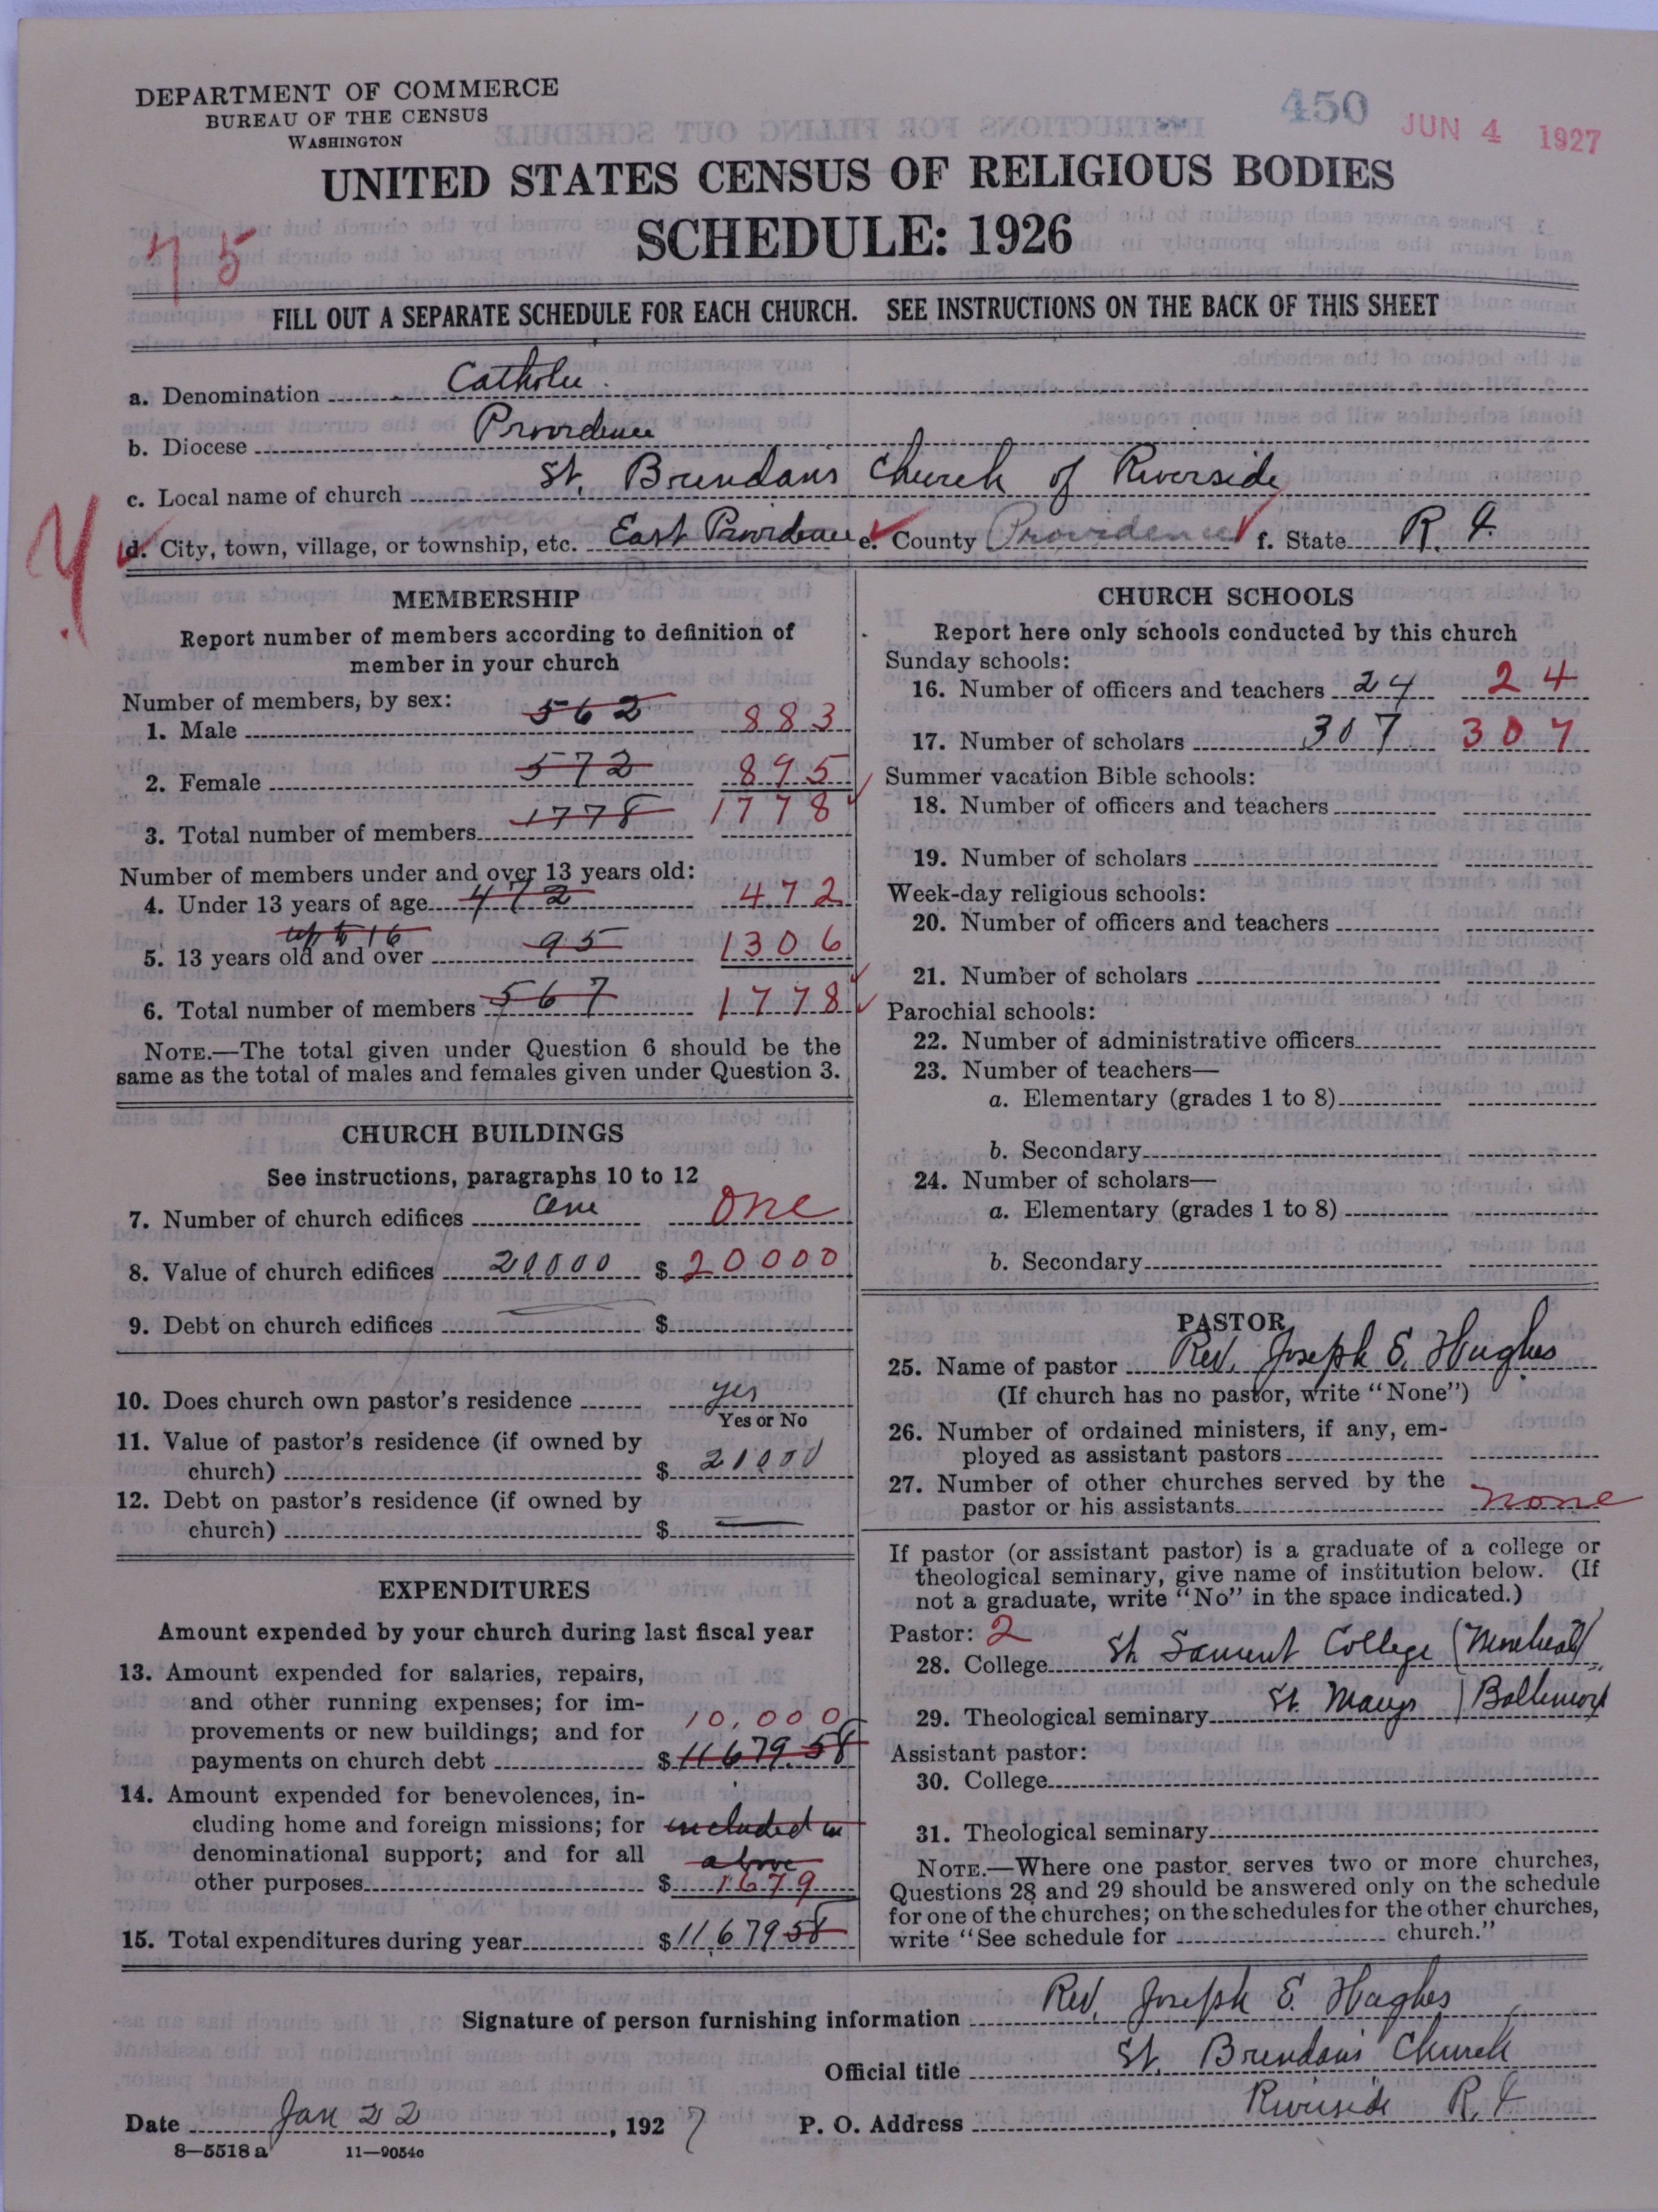 DEPARTMENT OF COMMERCE
BUREAU OF THE CENSUS
WASHINGTON
450
JUN 4 1927
UNITED STATES CENSUS OF RELIGIOUS BODIES
SCHEDULE: 1926
75
FILL OUT A SEPARATE SCHEDULE FOR EACH CHURCH. SEE INSTRUCTIONS ON THE BACK OF THIS SHEET
a. Denomination Catholic
b. Diocese Providence
c. Local name of church St. Brendans Church of Riverside
d. City, town, village, or township, etc. East Providence e. County (Providence) f. State R. I.
MEMBERSHIP
Report number of members according to definition of
member in your church
Number of members, by sex:
1. Male 562 883
2. Female 572 895
3. Total number of members 1778 1778
Number of members under and over 13 years old:
4. Under 13 years of age 472 472
up to 16
5. 13 years old and over 95 1306
6. Total number of members 567 1778
NOTE.—The total given under Question 6 should be the
same as the total of males and females given under Question 3.
CHURCH BUILDINGS
See instructions, paragraphs 10 to 12
7. Number of church edifices One One
8. Value of church edifices 20000 $ 20000
9. Debt on church edifices $
10. Does church own pastor's residence yes
Yes or No
11. Value of pastor's residence (if owned by
church) $ 21000
12. Debt on pastor's residence (if owned by
church) $ —
EXPENDITURES
Amount expended by your church during last fiscal year
13. Amount expended for salaries, repairs,
and other running expenses; for im-
provements or new buildings; and for 10,000
payments on church debt $ 11679.58
14. Amount expended for benevolences, in-
cluding home and foreign missions; for included in
denominational support; and for all above
other purposes $ 1679
15. Total expenditures during year $ 11,679 58
CHURCH SCHOOLS
Report here only schools conducted by this church
Sunday schools:
16. Number of officers and teachers 24 24
17. Number of scholars 307 307
Summer vacation Bible schools:
18. Number of officers and teachers
19. Number of scholars
Week-day religious schools:
20. Number of officers and teachers
21. Number of scholars
Parochial schools:
22. Number of administrative officers
23. Number of teachers—
a. Elementary (grades 1 to 8)
b. Secondary
24. Number of scholars—
a. Elementary (grades 1 to 8)
b. Secondary
PASTOR
25. Name of pastor Rev. Joseph E. Hughes
(If church has no pastor, write "None")
26. Number of ordained ministers, if any, em-
ployed as assistant pastors
27. Number of other churches served by the
pastor or his assistants none
If pastor (or assistant pastor) is a graduate of a college or
theological seminary, give name of institution below. (If
not a graduate, write "No" in the space indicated.)
Pastor: 2
28. College College (Montreal)
29. Theological seminary St. Marys Baltimore
Assistant pastor:
30. College
31. Theological seminary
NOTE.—Where one pastor serves two or more churches,
Questions 28 and 29 should be answered only on the schedule
for one of the churches; on the schedules for the other churches,
write "See schedule for church."
Signature of person furnishing information Rev. Joseph E. Hughes
Official title St. Brendans Church
Date Jan 22, 1927 P. O. Address Riverside R. I.
8—5518 a 11—9054c